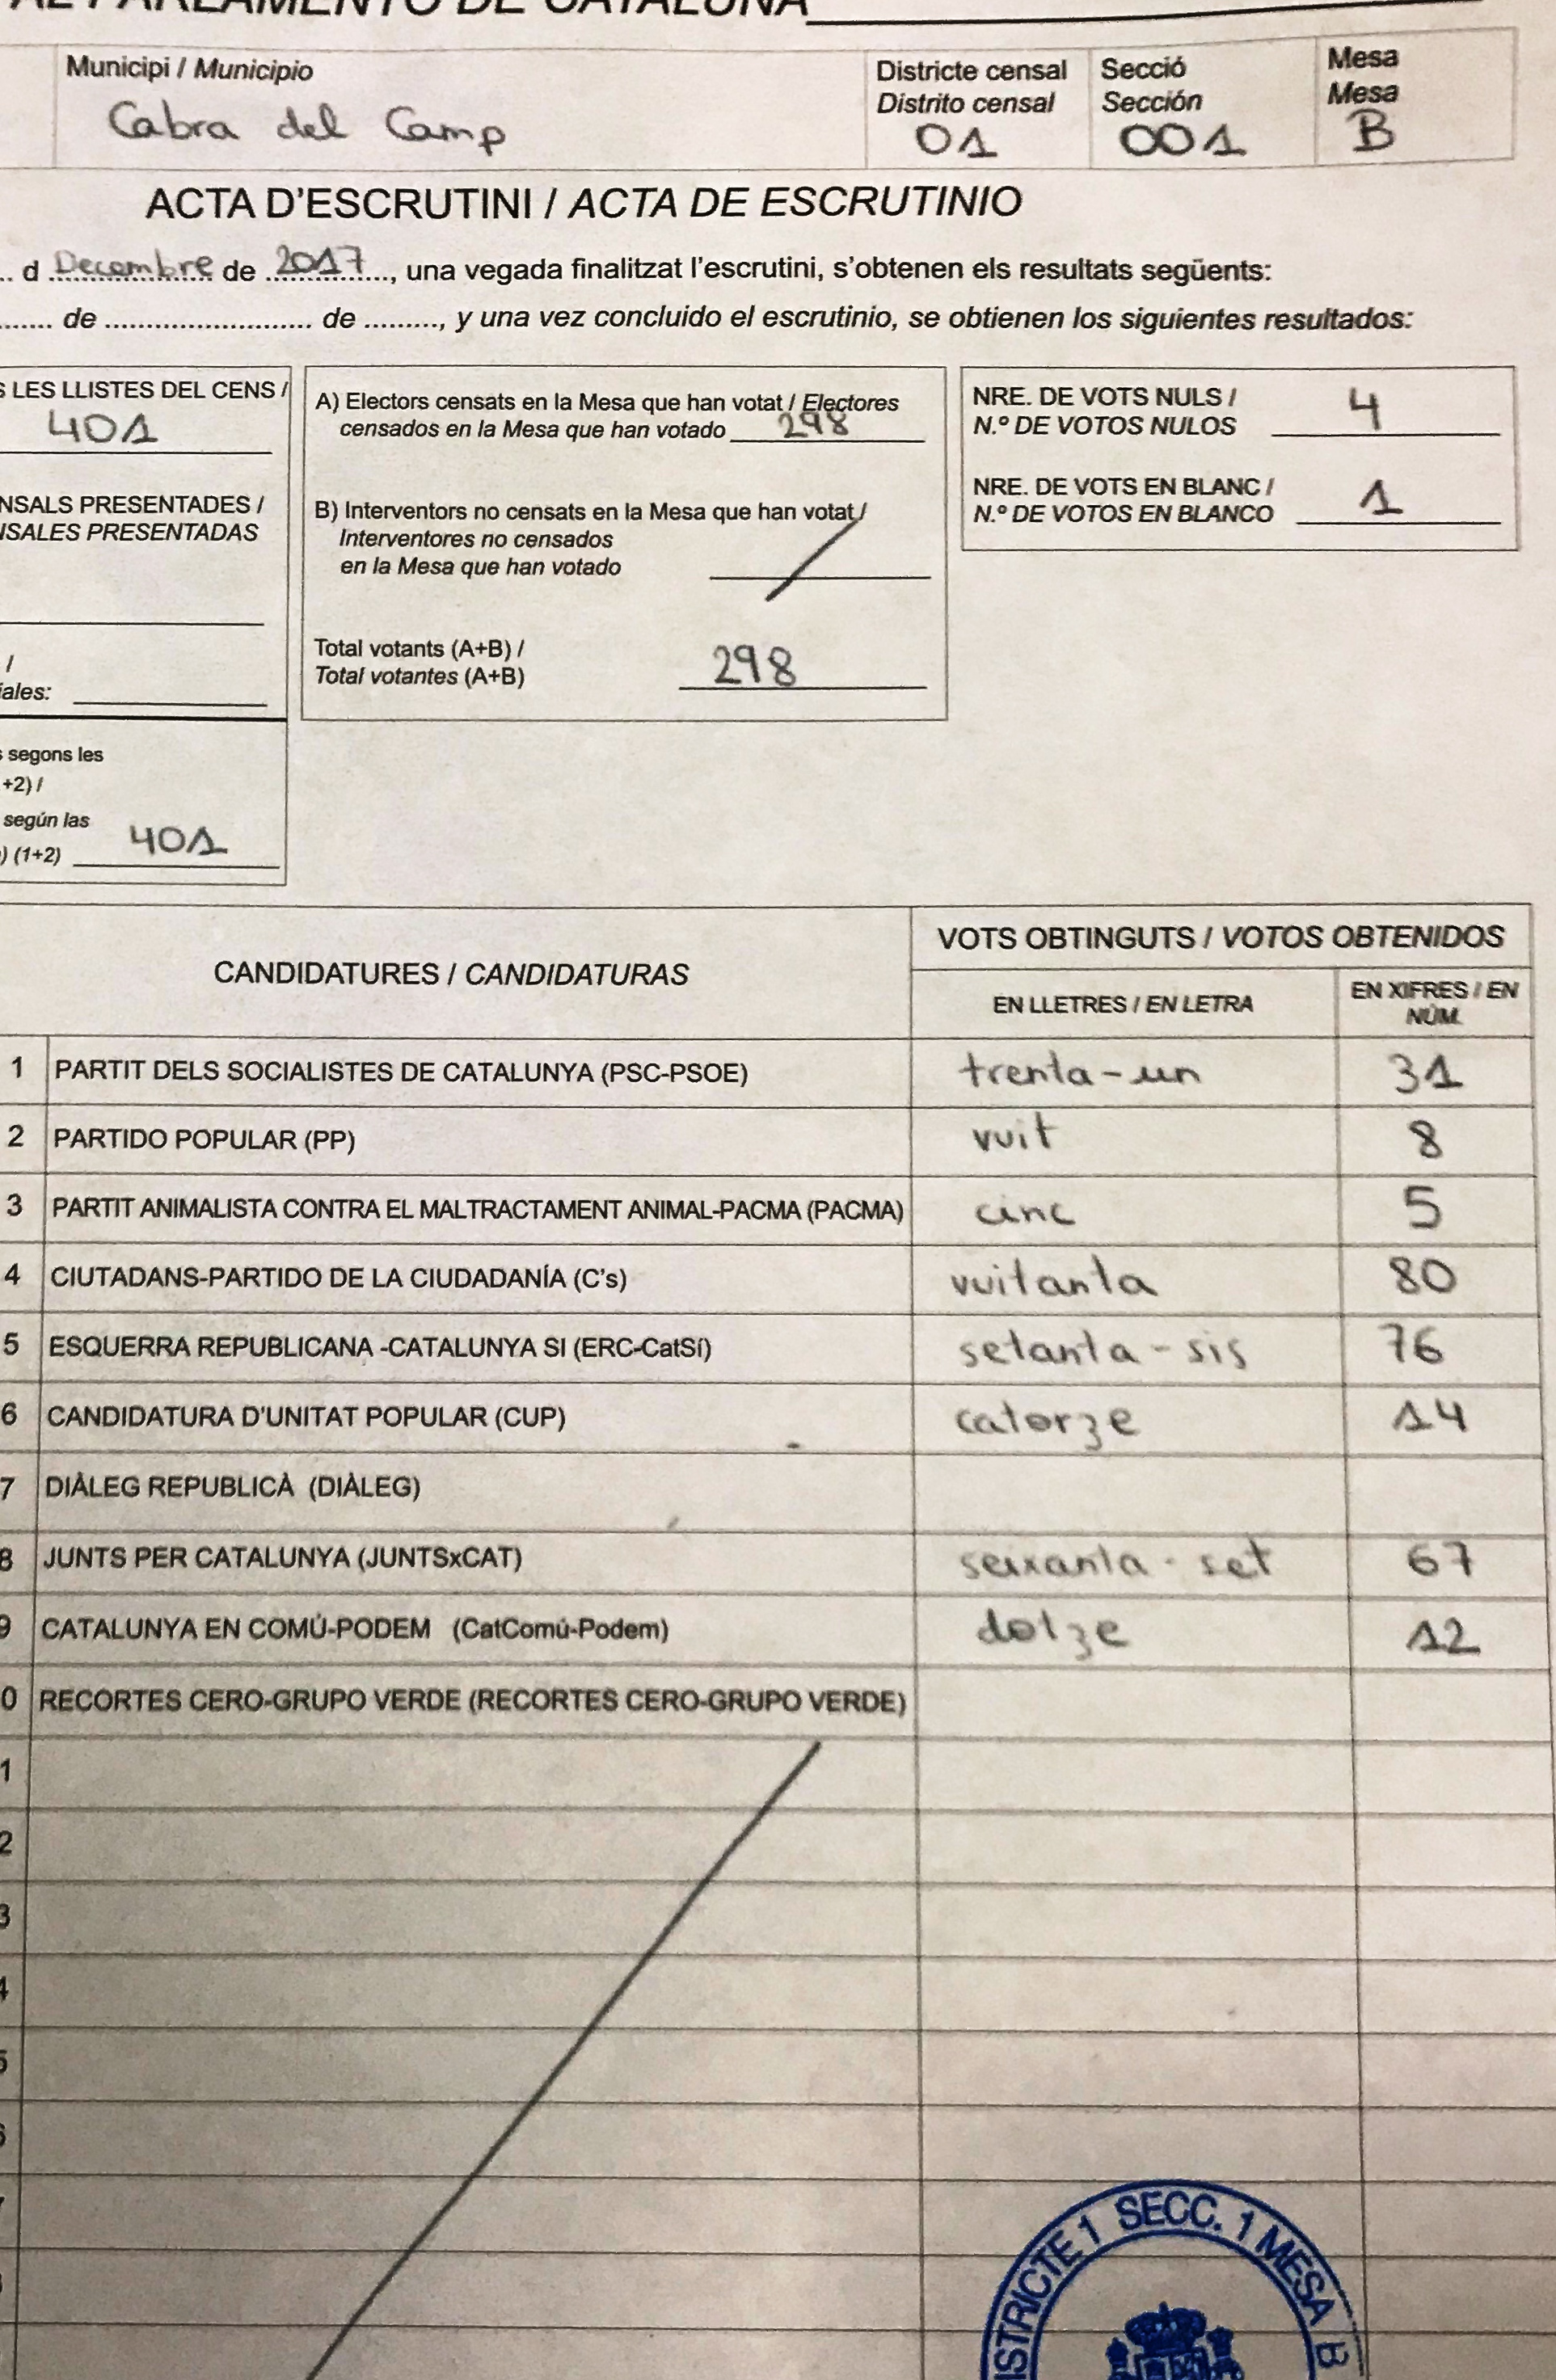 AL PARLAMENTO DE CATALUÑA
Municipi / Municipio
Cabra del Camp
Districte censal
Distrito censal
01
Secció
Sección
001
Mesa
Mesa
B
ACTA D'ESCRUTINI / ACTA DE ESCRUTINIO
.. d Decembre de 2017, una vegada finalitzat l'escrutini, s'obtenen els resultats següents:
....... de ........................ de ........., y una vez concluido el escrutinio, se obtienen los siguientes resultados:
S LES LLISTES DEL CENS /
401
NSALS PRESENTADES /
ISALES PRESENTADAS
/
iales:
s segons les
+2) /
según las
) (1+2) 401
A) Electors censats en la Mesa que han votat / Electores
censados en la Mesa que han votado 298
B) Interventors no censats en la Mesa que han votat /
Interventores no censados
en la Mesa que han votado
Total votants (A+B) /
Total votantes (A+B) 298
NRE. DE VOTS NULS /
N.º DE VOTOS NULOS 4
NRE. DE VOTS EN BLANC /
N.º DE VOTOS EN BLANCO 1
CANDIDATURES / CANDIDATURAS
VOTS OBTINGUTS / VOTOS OBTENIDOS
EN LLETRES / EN LETRA
EN XIFRES / EN
NÚM.
1 PARTIT DELS SOCIALISTES DE CATALUNYA (PSC-PSOE) trenta-un 31
2 PARTIDO POPULAR (PP) vuit 8
3 PARTIT ANIMALISTA CONTRA EL MALTRACTAMENT ANIMAL-PACMA (PACMA) cinc 5
4 CIUTADANS-PARTIDO DE LA CIUDADANÍA (C's) vuitanta 80
5 ESQUERRA REPUBLICANA -CATALUNYA SI (ERC-CatSí) setanta-sis 76
6 CANDIDATURA D'UNITAT POPULAR (CUP) catorze 14
7 DIÀLEG REPUBLICÀ (DIÀLEG)
8 JUNTS PER CATALUNYA (JUNTSxCAT) seixanta-set 67
9 CATALUNYA EN COMÚ-PODEM (CatComú-Podem) dotze 12
0 RECORTES CERO-GRUPO VERDE (RECORTES CERO-GRUPO VERDE)
1
2
3
4
5
6
STRICTE 1 SECC. 1 MESA B